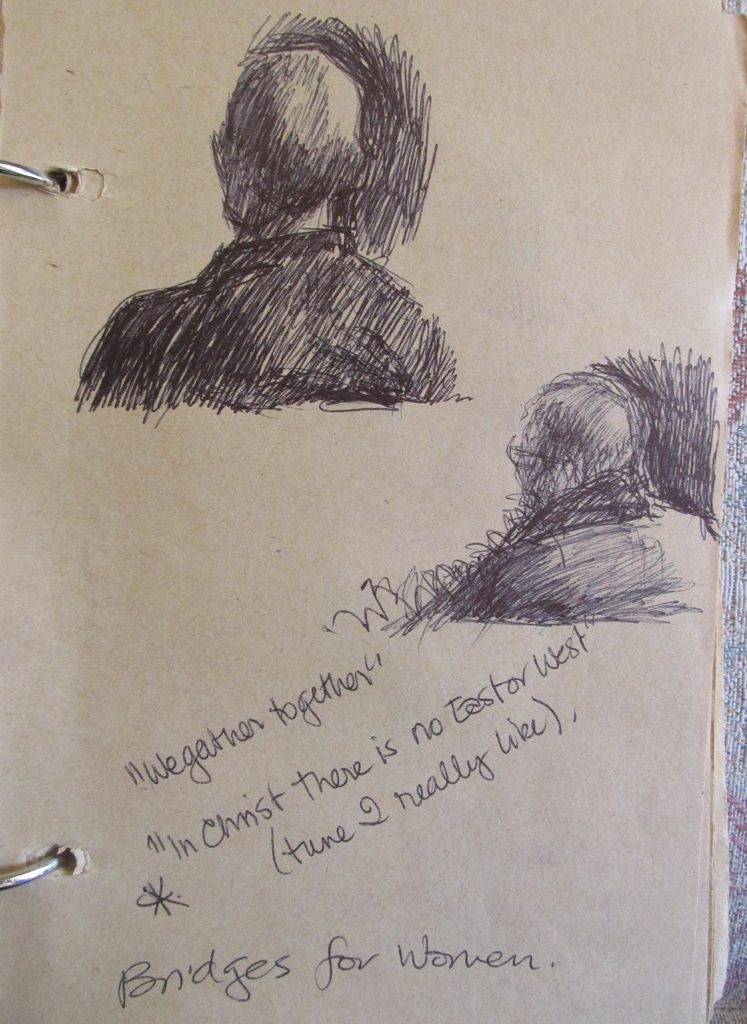 "We gather together"
"In Christ there is no East or West"
(tune I really like).
*
Bridges for Women.